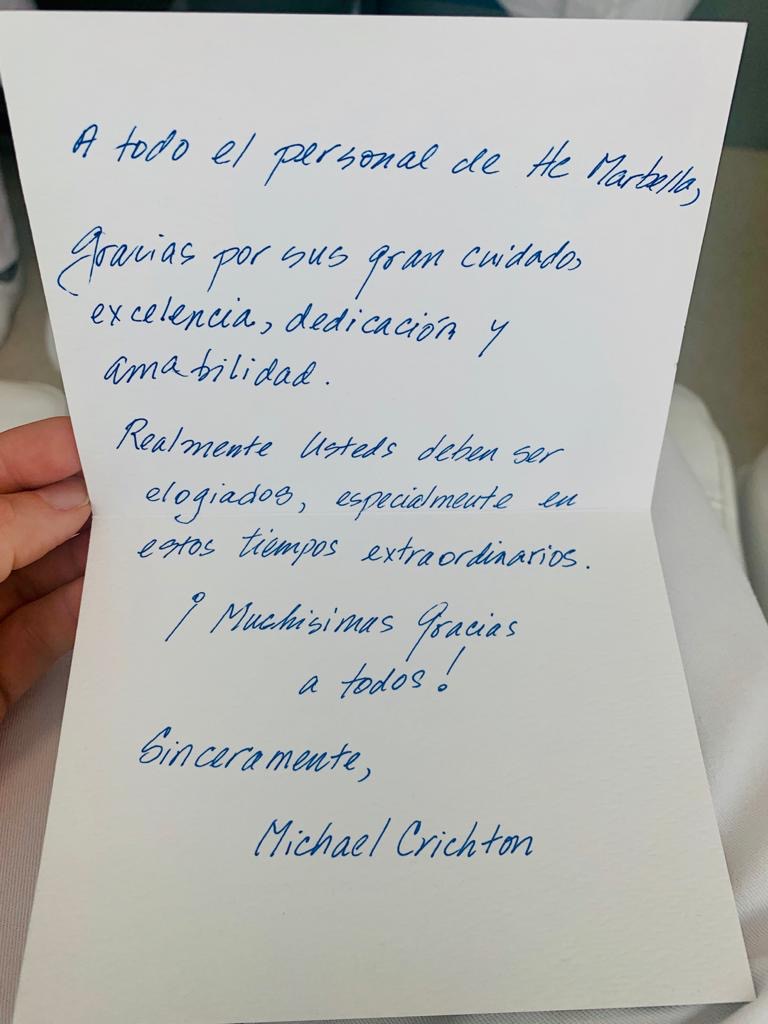 A todo el personal de Hc Marbella,
Gracias por sus gran cuidado,
excelencia, dedicación y
amabilidad.
Realmente Usteds deben ser
elogiados, especialmente en
estos tiempos extraordinarios.
¡Muchisimas Gracias
a todos!
Sinceramente,
Michael Crichton